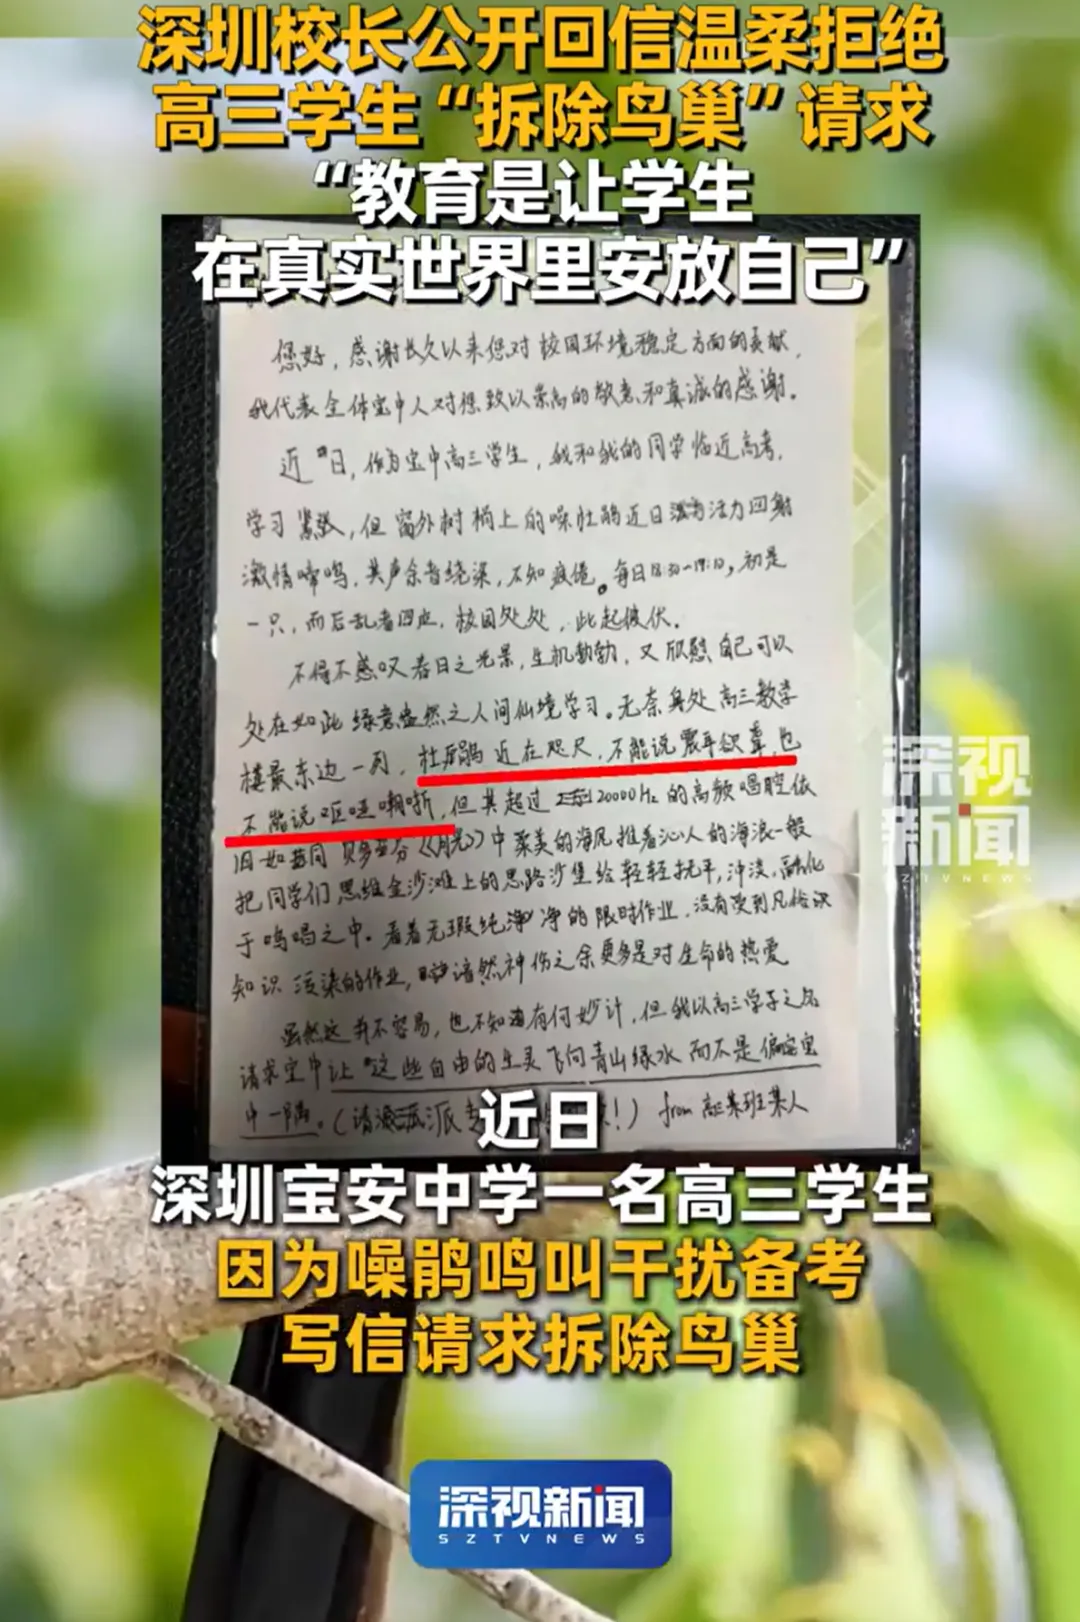 深圳校长公开回信温柔拒绝
高三学生“拆除鸟巢”请求
“教育是让学生
在真实世界里安放自己”
您好，感谢长久以来您对校园环境稳定方面的贡献，
我代表全体宝中人对您致以崇高的敬意和真诚的感谢。
近日，作为宝中高三学生，我和我的同学临近高考，
学习紧张，但窗外树梢上的噪杜鹃近日活力四射
激情啼鸣，其声余音绕梁，不知疲倦。每日18:30-19:10，初是
一只，而后乱者四应，校园处处，此起彼伏。
不得不感叹春日之光景，生机勃勃，又欣慰自己可以
处在如此绿意盎然之人间仙境学习。无奈身处高三教学
楼最东边一列，杜鹃近在咫尺，不能说震耳欲聋，也
不能说呕哑嘲哳，但其超过20000Hz的高频唱腔依
旧如同贝多芬《月光》中柔美的海风推着沁人的海浪一般
把同学们思维金沙滩上的思路沙堡给轻轻抚平，冲淡，融化
于鸣唱之中。看着无瑕纯净的限时作业，没有受到凡俗
知识污染的作业，黯然神伤之余更多是对生命的热爱
虽然这并不容易，也不知道有何妙计，但我以高三学子之名
请求宝中让这些自由的生灵飞向青山绿水而不是偏安宝
中一隅。（请派 ！）from 高三某班某人
深视新闻
SZTVNEWS
近日
深圳宝安中学一名高三学生
因为噪鹃鸣叫干扰备考
写信请求拆除鸟巢
深视新闻
SZTVNEWS